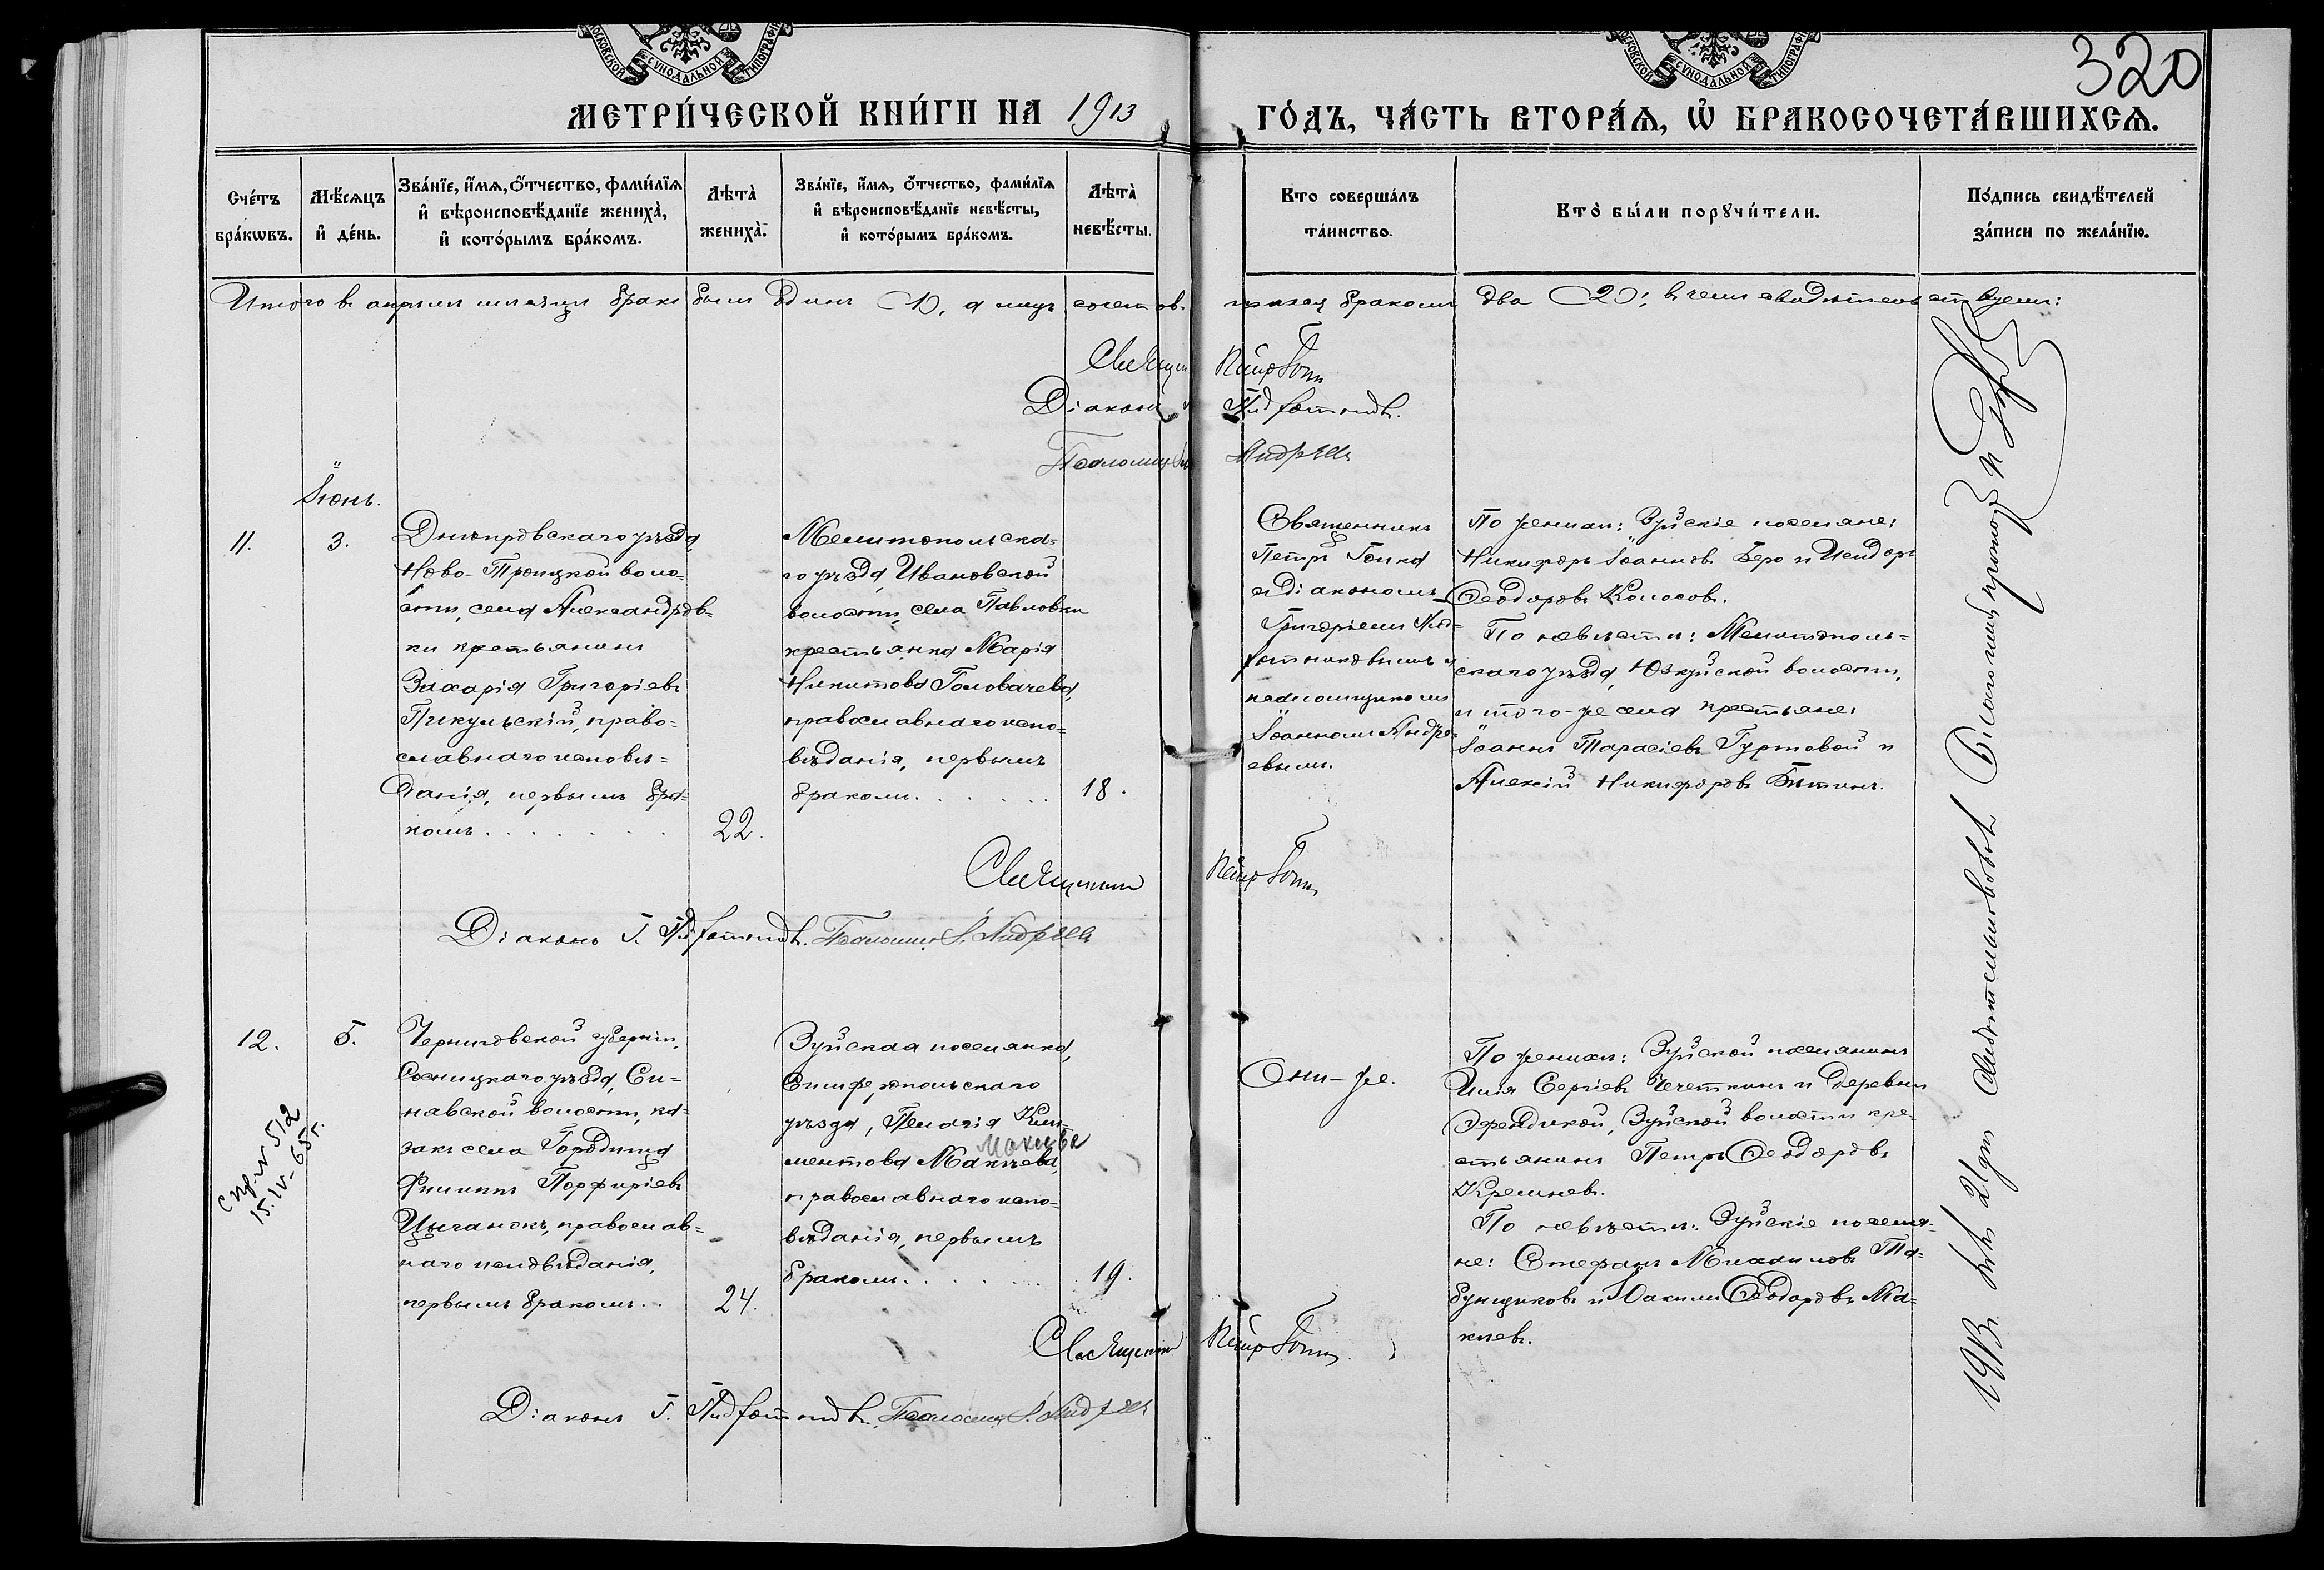 320
МОСКОВСКОЙ СѴНОДАЛЬНОЙ ТИПОГРАФІИ
МЕТРИ́ЧЕСКОЙ КНИ́ГИ НА 1913 ГО́ДЪ, ЧА́СТЬ ВТОРА́Ѧ, Ѽ БРАКОСОЧЕТА́ВШИХСѦ.
Сче́тъ бра́кѡвъ.
Мѣ́сѧцъ и҆ де́нь.
Зва́нїе, и҆́мѧ, ѻ҆́тчество, фами́лїѧ и҆ вѣроисповѣ́данїе жениха̀, и҆ кото́рымъ бра́комъ.
Лѣта̀ жениха̀.
Зва́нїе, и҆́мѧ, ѻ҆́тчество, фами́лїѧ и҆ вѣроисповѣ́данїе невѣ́сты, и҆ кото́рымъ бра́комъ.
Лѣта̀ невѣ́сты.
Кто совершáлъ тáинство.
Кто̀ бы́ли порꙋчи́тели.
По́дпись свидѣ́телей за́писи по жела́нїю.
Итого въ апрѣлѣ мѣсяцѣ бракъ былъ одинъ (1), а лицъ сочетавшихся бракомъ два (2); въ чемъ свидѣтельствуемъ:
Священникъ Петръ Гонка
Діаконъ
Псаломщикъ Андреевъ
Іюнь.
11.
3.
Днѣпровскаго уѣзда,
Ново-Троицкой воло-
сти, села Александров-
ки крестьянинъ
Захарія Григоріевъ
Пикульскій, право-
славнаго исповѣ-
данія, первымъ бра-
комъ.......
22.
Мелитопольска-
го уѣзда, Ивановской
волости, села Павловки
крестьянка Марія
Никитова Головачева,
православнаго испо-
вѣданія, первымъ
бракомъ......
18.
Священникъ
Петръ Гонка
съ діакономъ
Григоріемъ
псаломщикомъ
Іоанномъ Андре-
евымъ.
По женихѣ: Зуйскіе поселяне:
Никифоръ Іоанновъ Беро и Исидоръ
Ѳеодоровъ Колосовъ.
По невѣстѣ: Мелитополь-
скаго уѣзда, Юзкуйской волости,
и того-же села крестьяне:
Іоаннъ Тарасіевъ Гуртовой и
Алексій Никифоровъ Битинъ.
Священникъ Петръ Гонка
Діаконъ Г. Псаломщ. І. Андреевъ
12.
5.
Черниговской губерніи,
Сосницкаго уѣзда, Си-
навской волости, ка-
закъ села Городища
Филиппъ Порфиріевъ
Цыганокъ, православ-
наго исповѣданія,
первымъ бракомъ..
24.
Зуйская поселянка,
Симферопольскаго
уѣзда, Пелагія Кли-
ментова Макіева,
православнаго испо-
вѣданія, первымъ
бракомъ......
19.
Они-же.
По женихѣ: Зуйской поселянинъ
Илія Сергіевъ Чечеткинъ и деревни
Эфендикой, Зуйской волости кре-
стьянинъ Петръ Ѳеодоровъ
Кремневъ.
По невѣстѣ: Зуйскіе поселя-
не: Стефанъ Михаиловъ Та-
бунщиковъ и Іоакимъ Ѳеодоровъ Ма-
кіевъ.
Спр. N 512
15.IV-65г.
Священникъ Петръ Гонка
Діаконъ Г. Псаломщ. І. Андреевъ
1913 г. 21 дня свидѣтельствовалъ Благочинный, протоіер.